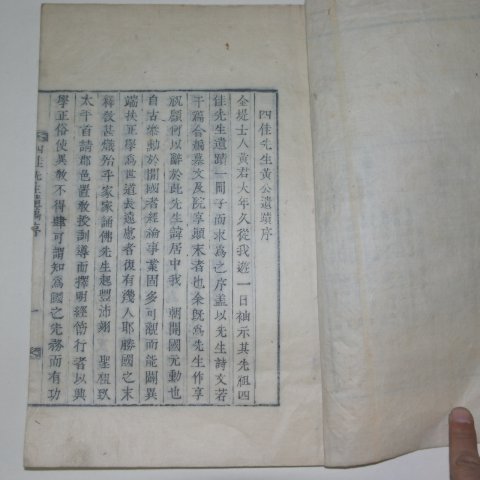 四佳先生黃公遺蹟序
金堤士人黃君大年久從我遊一日袖示其先祖四
佳先生遺蹟一冊子而求爲之序蓋以先生詩文若
干篇合編墓文及院享顚末者也余旣爲先生作享
祝顧何以辭於此先生諱居中我 朝開國元勳也
自古策勳於開國者經論事業固多可觀而能闢異
端扶正學爲世道去遠慮者復有幾人耶勝國之末
釋敎甚熾殆乎家家誦傳先生起豐沛翊 聖祖致
太平首請郡邑置敎授訓導而擇明經飭行者以興
學正俗使異敎不得肆可謂知爲國之先務而有功
四佳先生遺稿序